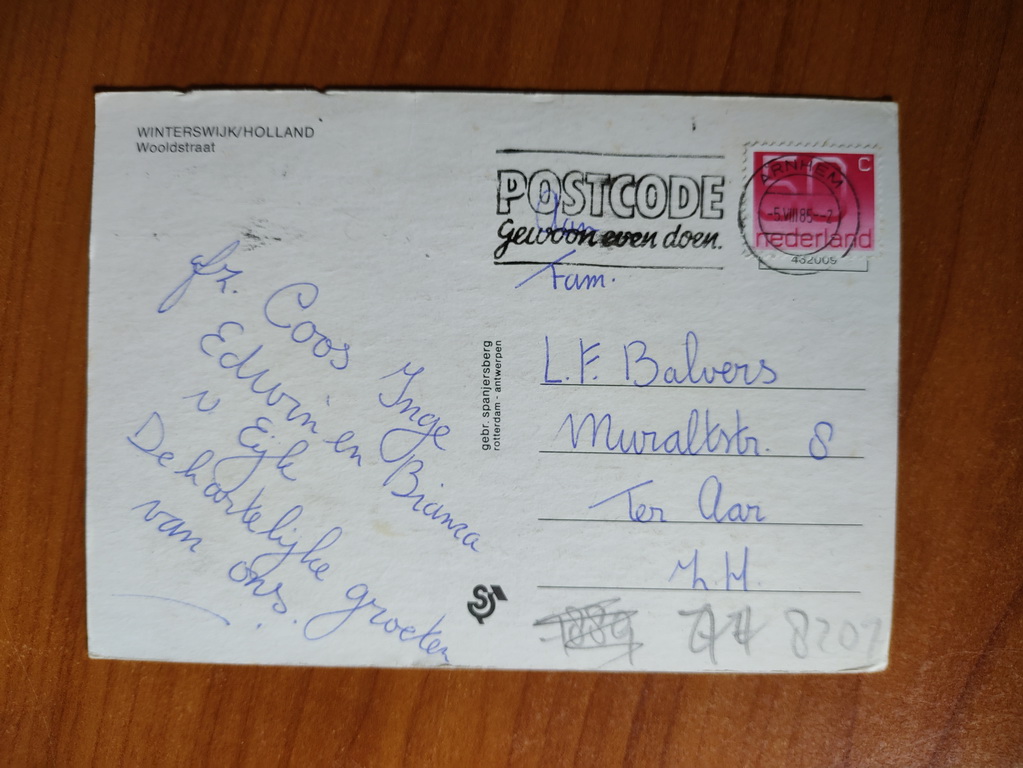 WINTERSWIJK/HOLLAND
Wooldstraat
POSTCODE
Gewoon even doen.
ARNHEM
-5.VIII85--2
50 C
nederland
432009
Aan
Fam.
L.F. Balvers
Muraltstr. 8
Ter Aar
Z.H.
afz. Coos Inge
Edwin en Bianca
v Eijk
De hartelijke groeten
van ons.
gebr. spanjersberg
rotterdam - antwerpen
SJ
8207